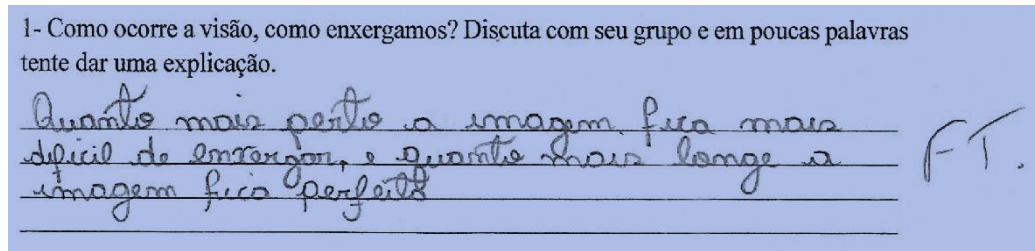 1- Como ocorre a visão, como enxergamos? Discuta com seu grupo e em poucas palavras
tente dar uma explicação.
Quanto mais perto a imagem fica mais
dificil de enxergar, e quanto mais longe a
imagem fica perfeita
FT.